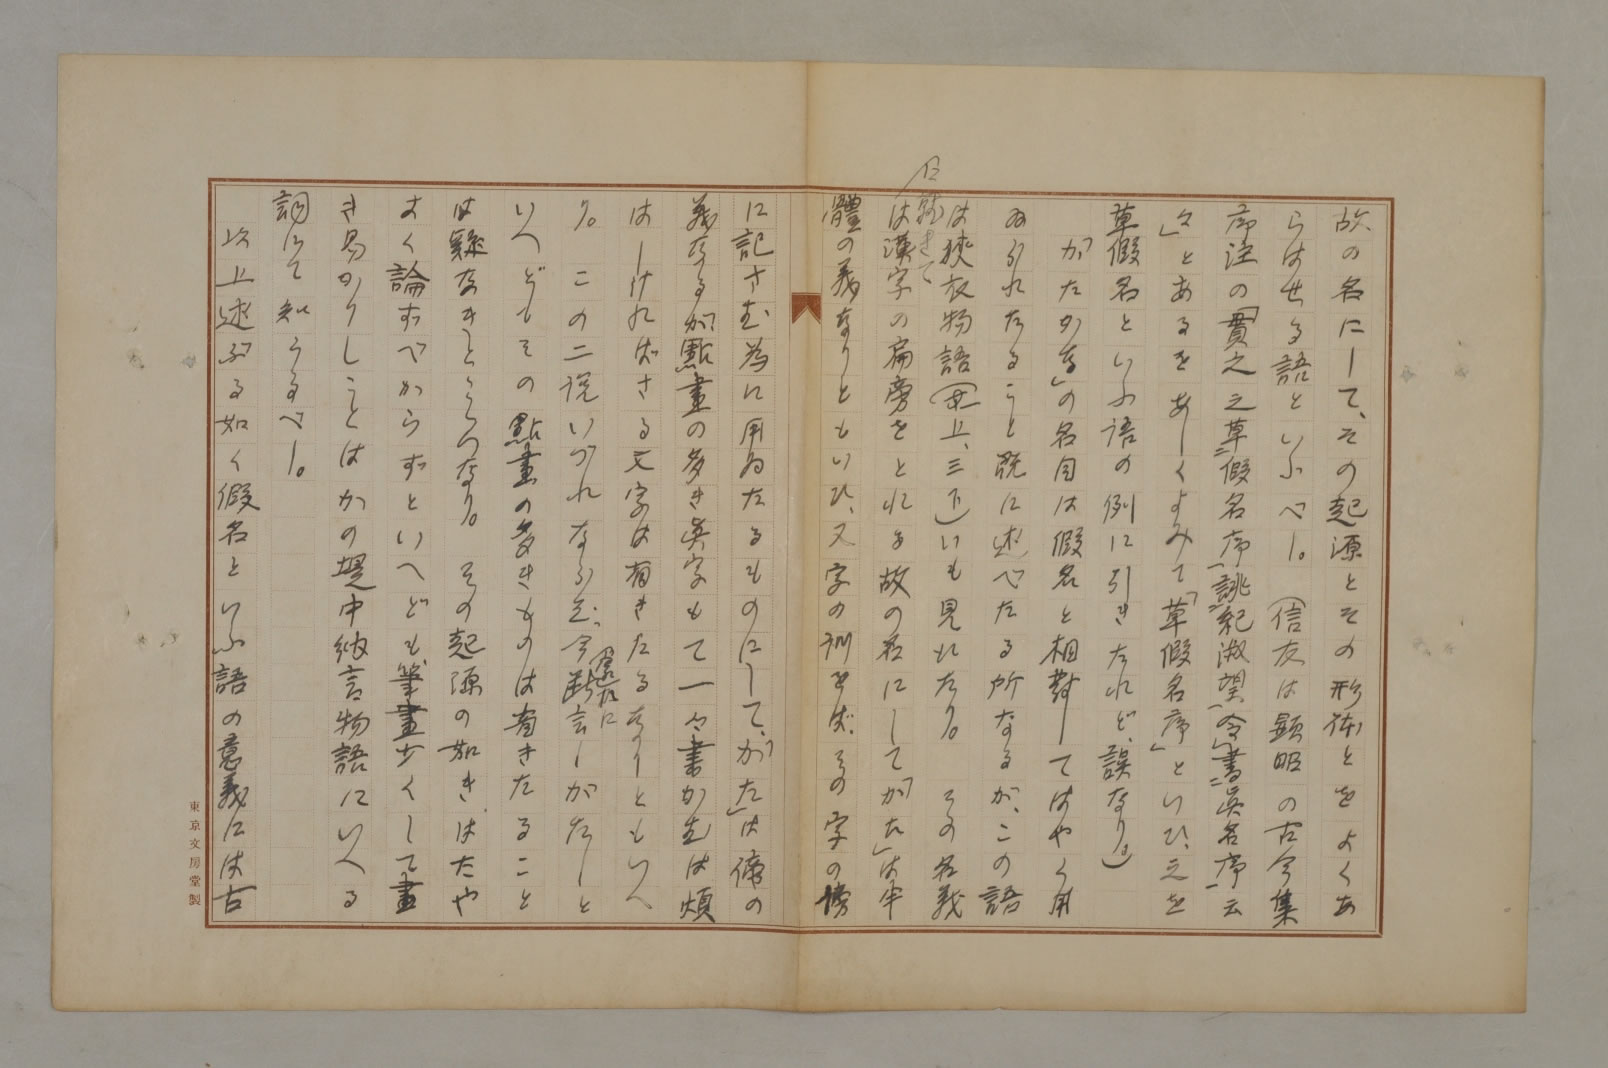 故の名にして、その起源とその形体とをよくあ
らはせる語といふべし。(信友は顕昭の古今集
序注の「貫之之草假名序、誂紀淑望、令書眞名序云
々」とあるをあしくよみて「草假名序」といひ、之を
草假名といふ語の例に引きたれど、誤なり。)
「かたかな」の名目は假名と相對してはやく用
ゐられたること既に述べたる所なるが、この語
は狹衣物語(一上、三下)にも見れたり。その名義
に就きて
は漢字の扁旁をとれる故の名にして「かた」は半
體の義なりともいひ、又字の訓をば、その字の傍
に記さむ爲に用ゐたるものにして、「かた」は傍の
義なるが、點畫の多き眞字もて一々書かむは煩
はしければさる文字は省きたるなりともいへ
り。この二説いづれならむ、今遽に斷言しがたしと
いへどもその點畫の多きものは省きたること
は疑なきところなり。その起源の如き、はたや
すく論ずべからずといへども、筆畫少くして書
き易かりしことはかの堤中納言物語にいへる
詞にて知らるべし。
以上述ぶる如く假名といふ語の意義には古
東京文房堂製